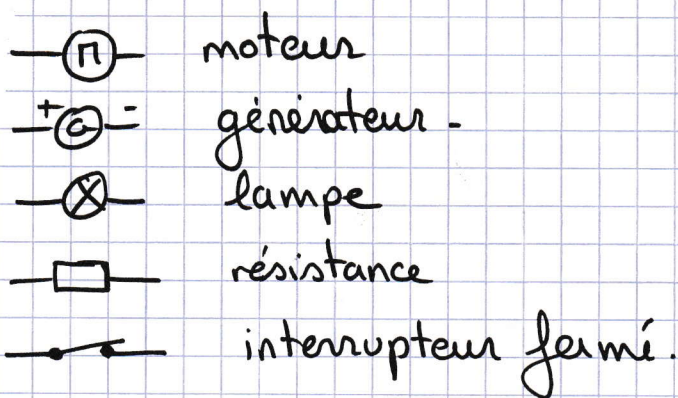 M moteur
+ G - générateur -
lampe
résistance
interrupteur fermé.